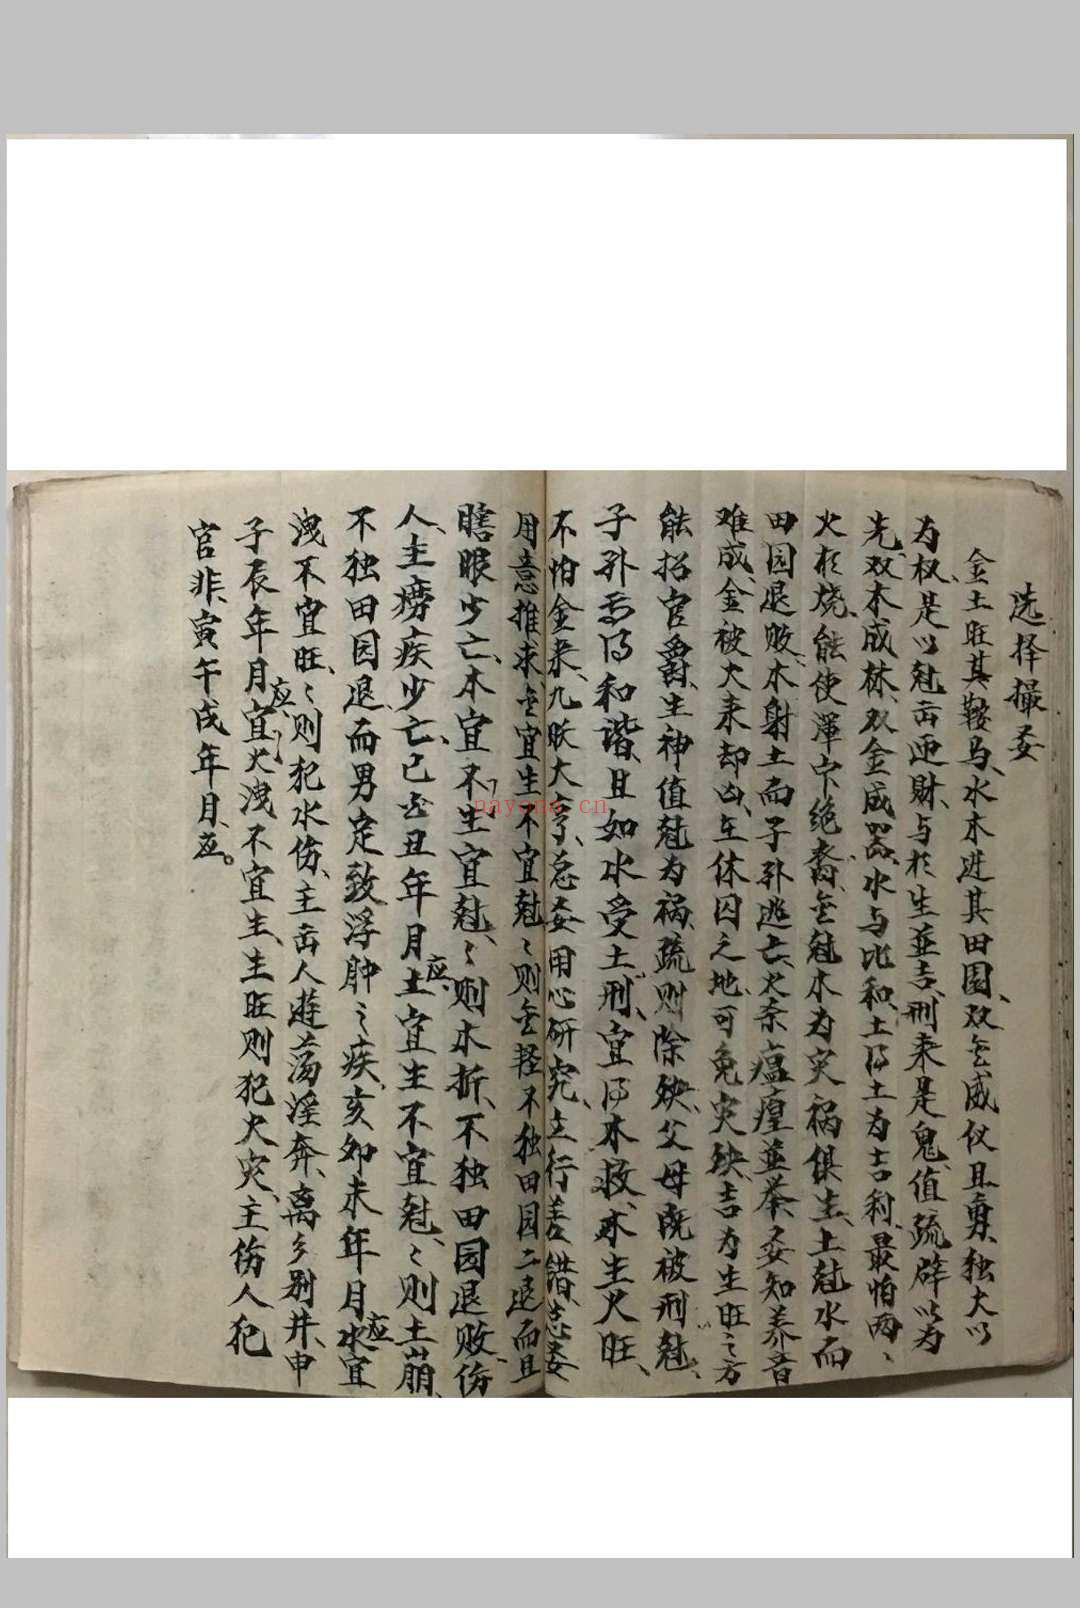 选择撮要
金土旺其鞍马、水木进其田园、双金威仪且勇、独火以
为权、是以尅出迎财、与於生並吉、刑来是鬼、值疏辟以为
先、双木成林、双金成器、水与比和、土得土为吉利、最怕两、
火於烧、能使浑家绝裔、金尅木为灾祸俱生、土尅水而
田园退败、木射土而子孙逃亡、火杀瘟瘴並举、要知养音
难成、金被火来却凶、在休囚之地、可免灾殃、吉为生旺之方
能招官爵、生神值尅为祸、疏则除殃、父母既被刑尅、
子孙焉得和谐、且如水受土刑、宜得木救、木生火旺、
不怕金来、九 大 、总要用心研究、立行差错、总要
用意推求金宜生不宜尅、〻则金轻不独田园二退而且
瞎眼少亡、木宜不生宜尅、〻则木折、不独田园退败、伤
人、主痨疾少亡、巳酉丑年月应、土宜生不宜尅、〻则土崩、
不独田园退、而男定致浮肿之疾、亥卯未年月应、水宜
洩不宜旺、〻则犯水伤、主出人遊荡淫奔、离乡别井、申
子辰年月应、宜火洩不宜生、生旺则犯火灾、主伤人犯
官非、寅午戌年月、应。
nayona.cn